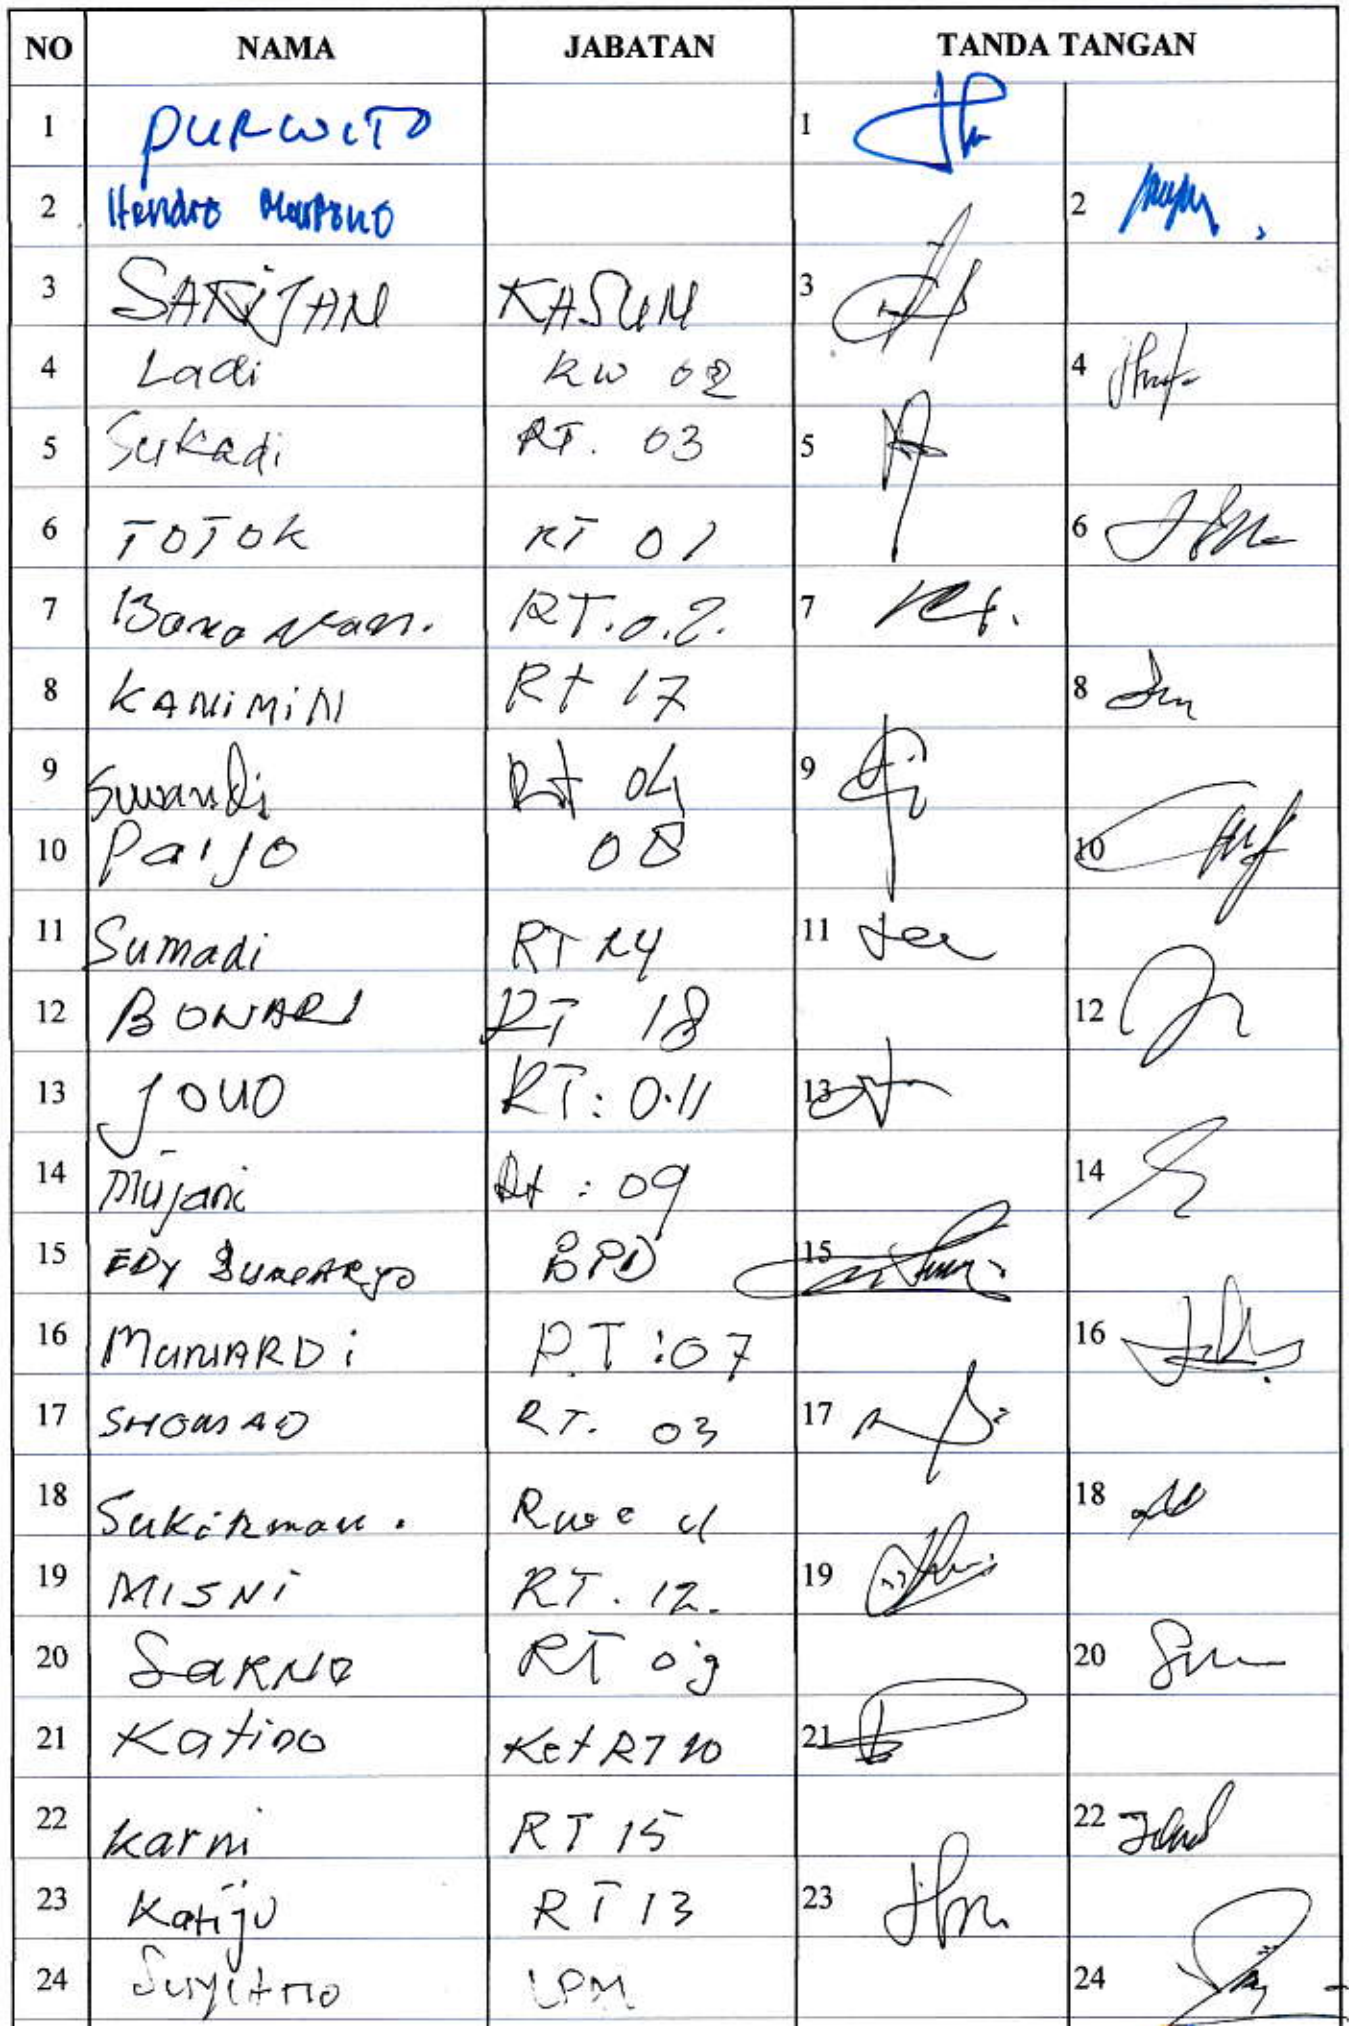 NO NAMA JABATAN TANDA TANGAN
1 PURWITO 1
2 Hendro Martono 2
3 SARIJAN KASUN 3
4 Ladi RW 02 4
5 Sukadi RT. 03 5
6 TOTOK RT 01 6
7 RT.0.2. 7
8 KANiMiN Rt 17 8
9 Suwandi Rt 04 9
10 Paijo 08 10
11 Sumadi RT 14 11
12 BONARI RT 18 12
13 JOUO RT: 0.11 13
14 Mujani Rt : 09 14
15 EDY BPD 15
16 MUNIARDi RT :07 16
17 RT. 03 17
18 Sukirman. 18
19 MISNi RT. 12. 19
20 SARNO RT 20
21 Katino Ket RT 10 21
22 Karni RT 15 22
23 Katiju RT 13 23
24 Suyitno LPM 24